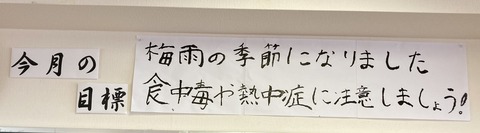 今月の
目標
梅雨の季節になりました
食中毒や熱中症に注意しましょう!